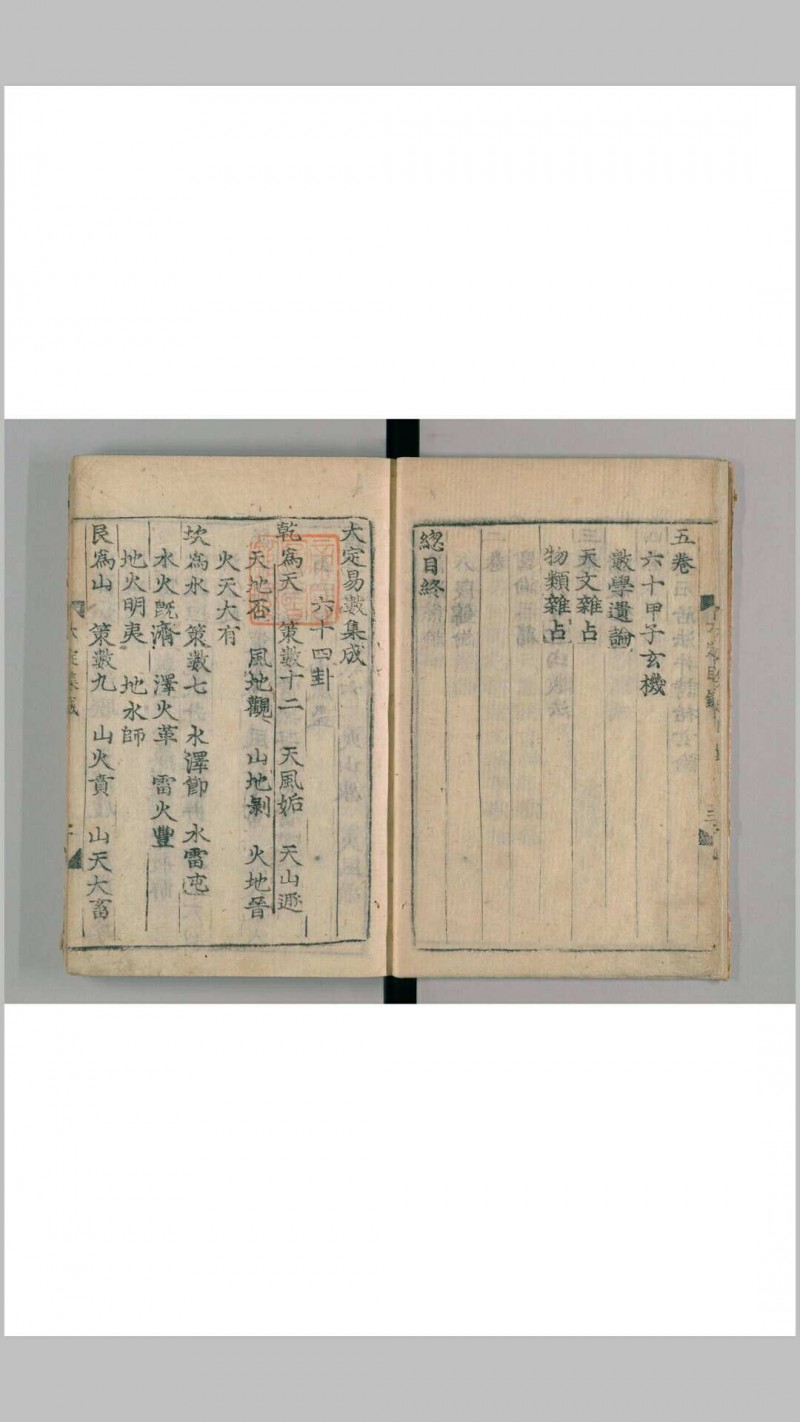 五卷
六十甲子玄機
數學遺論
天文雜占
物類雜占
總目終
大定易數集成
六十四卦
乾爲天 策數十二 天風姤 天山遯
天地否 風地觀 山地剝 火地晉
火天大有
坎爲水 策數七 水澤節 水雷屯
水火旣濟 澤火革 雷火豐
地火明夷 地水師
艮爲山 策數九 山火賁 山天大畜